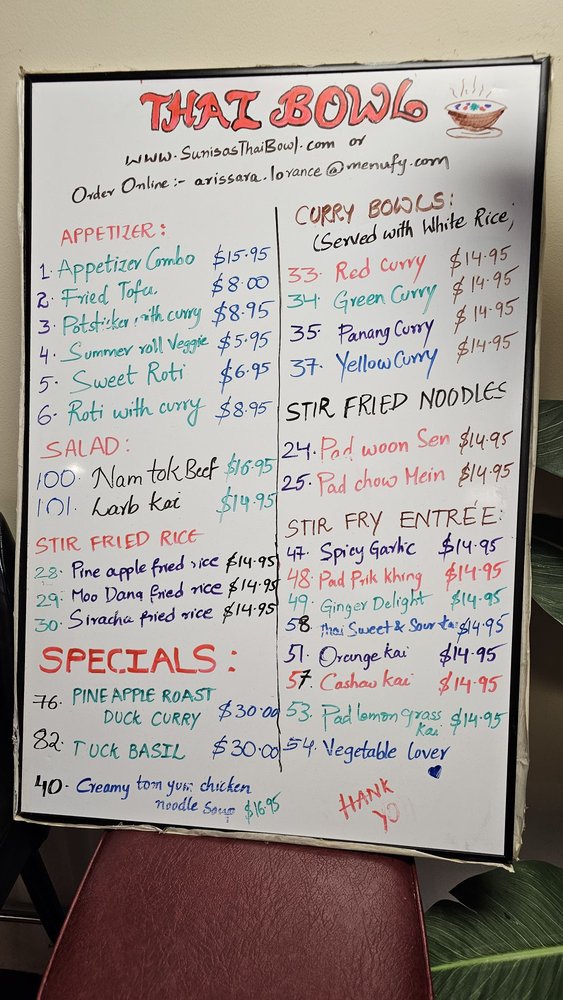 THAI BOWL
www.SunisasThaiBowl.com or
Order Online:- arissara.lorance@menufy.com
APPETIZER:
1. Appetizer Combo $15.95
2. Fried Tofu $8.00
3. Potsticker with curry $8.95
4. Summer roll Veggie $5.95
5. Sweet Roti $6.95
6. Roti with curry $8.95
SALAD:
100. Nam tok Beef $16.95
101. Larb kai $14.95
STIR FRIED RICE
28. Pineapple fried rice $14.95
29. Moo Dang fried rice $14.95
30. Siracha fried rice $14.95
SPECIALS:
76. PINEAPPLE ROAST
DUCK CURRY $30.00
82. TUCK BASIL $30.00
40. Creamy tom yum chicken
noodle Soup $16.95
CURRY BOWLS:
(Served with White Rice;
33. Red Curry $14.95
34. Green Curry $14.95
35. Panang Curry $14.95
37. Yellow Curry $14.95
STIR FRIED NOODLES
24. Pad woon Sen $14.95
25. Pad chow Mein $14.95
STIR FRY ENTRÉE:
47. Spicy Garlic $14.95
48. Pad Prik khing $14.95
49. Ginger Delight $14.95
58. Thai Sweet & Sour kai $14.95
51. Orange kai $14.95
57. Cashaw kai $14.95
53. Pad lemon grass
kai $14.95
54. Vegetable lover
HANK
YO